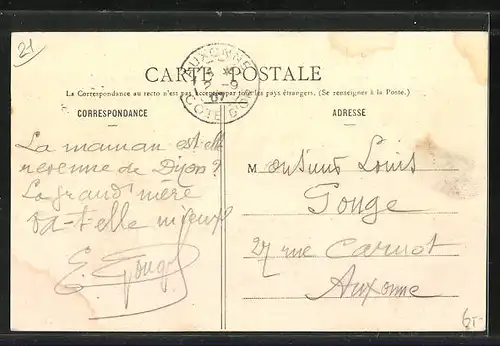 21
AUXONNE
7 -9
07
COTE D'OR
CARTE POSTALE
La Correspondance au recto n'est pas acceptée par tous les pays étrangers. (Se renseignes à la Poste.)
CORRESPONDANCE
La maman est-elle
revenue de Dijon ?
La grand'mère
va-t-elle mieux ?
E. Gouge
ADRESSE
Monsieur Louis
Gouge
27 rue Carnot
Auxonne